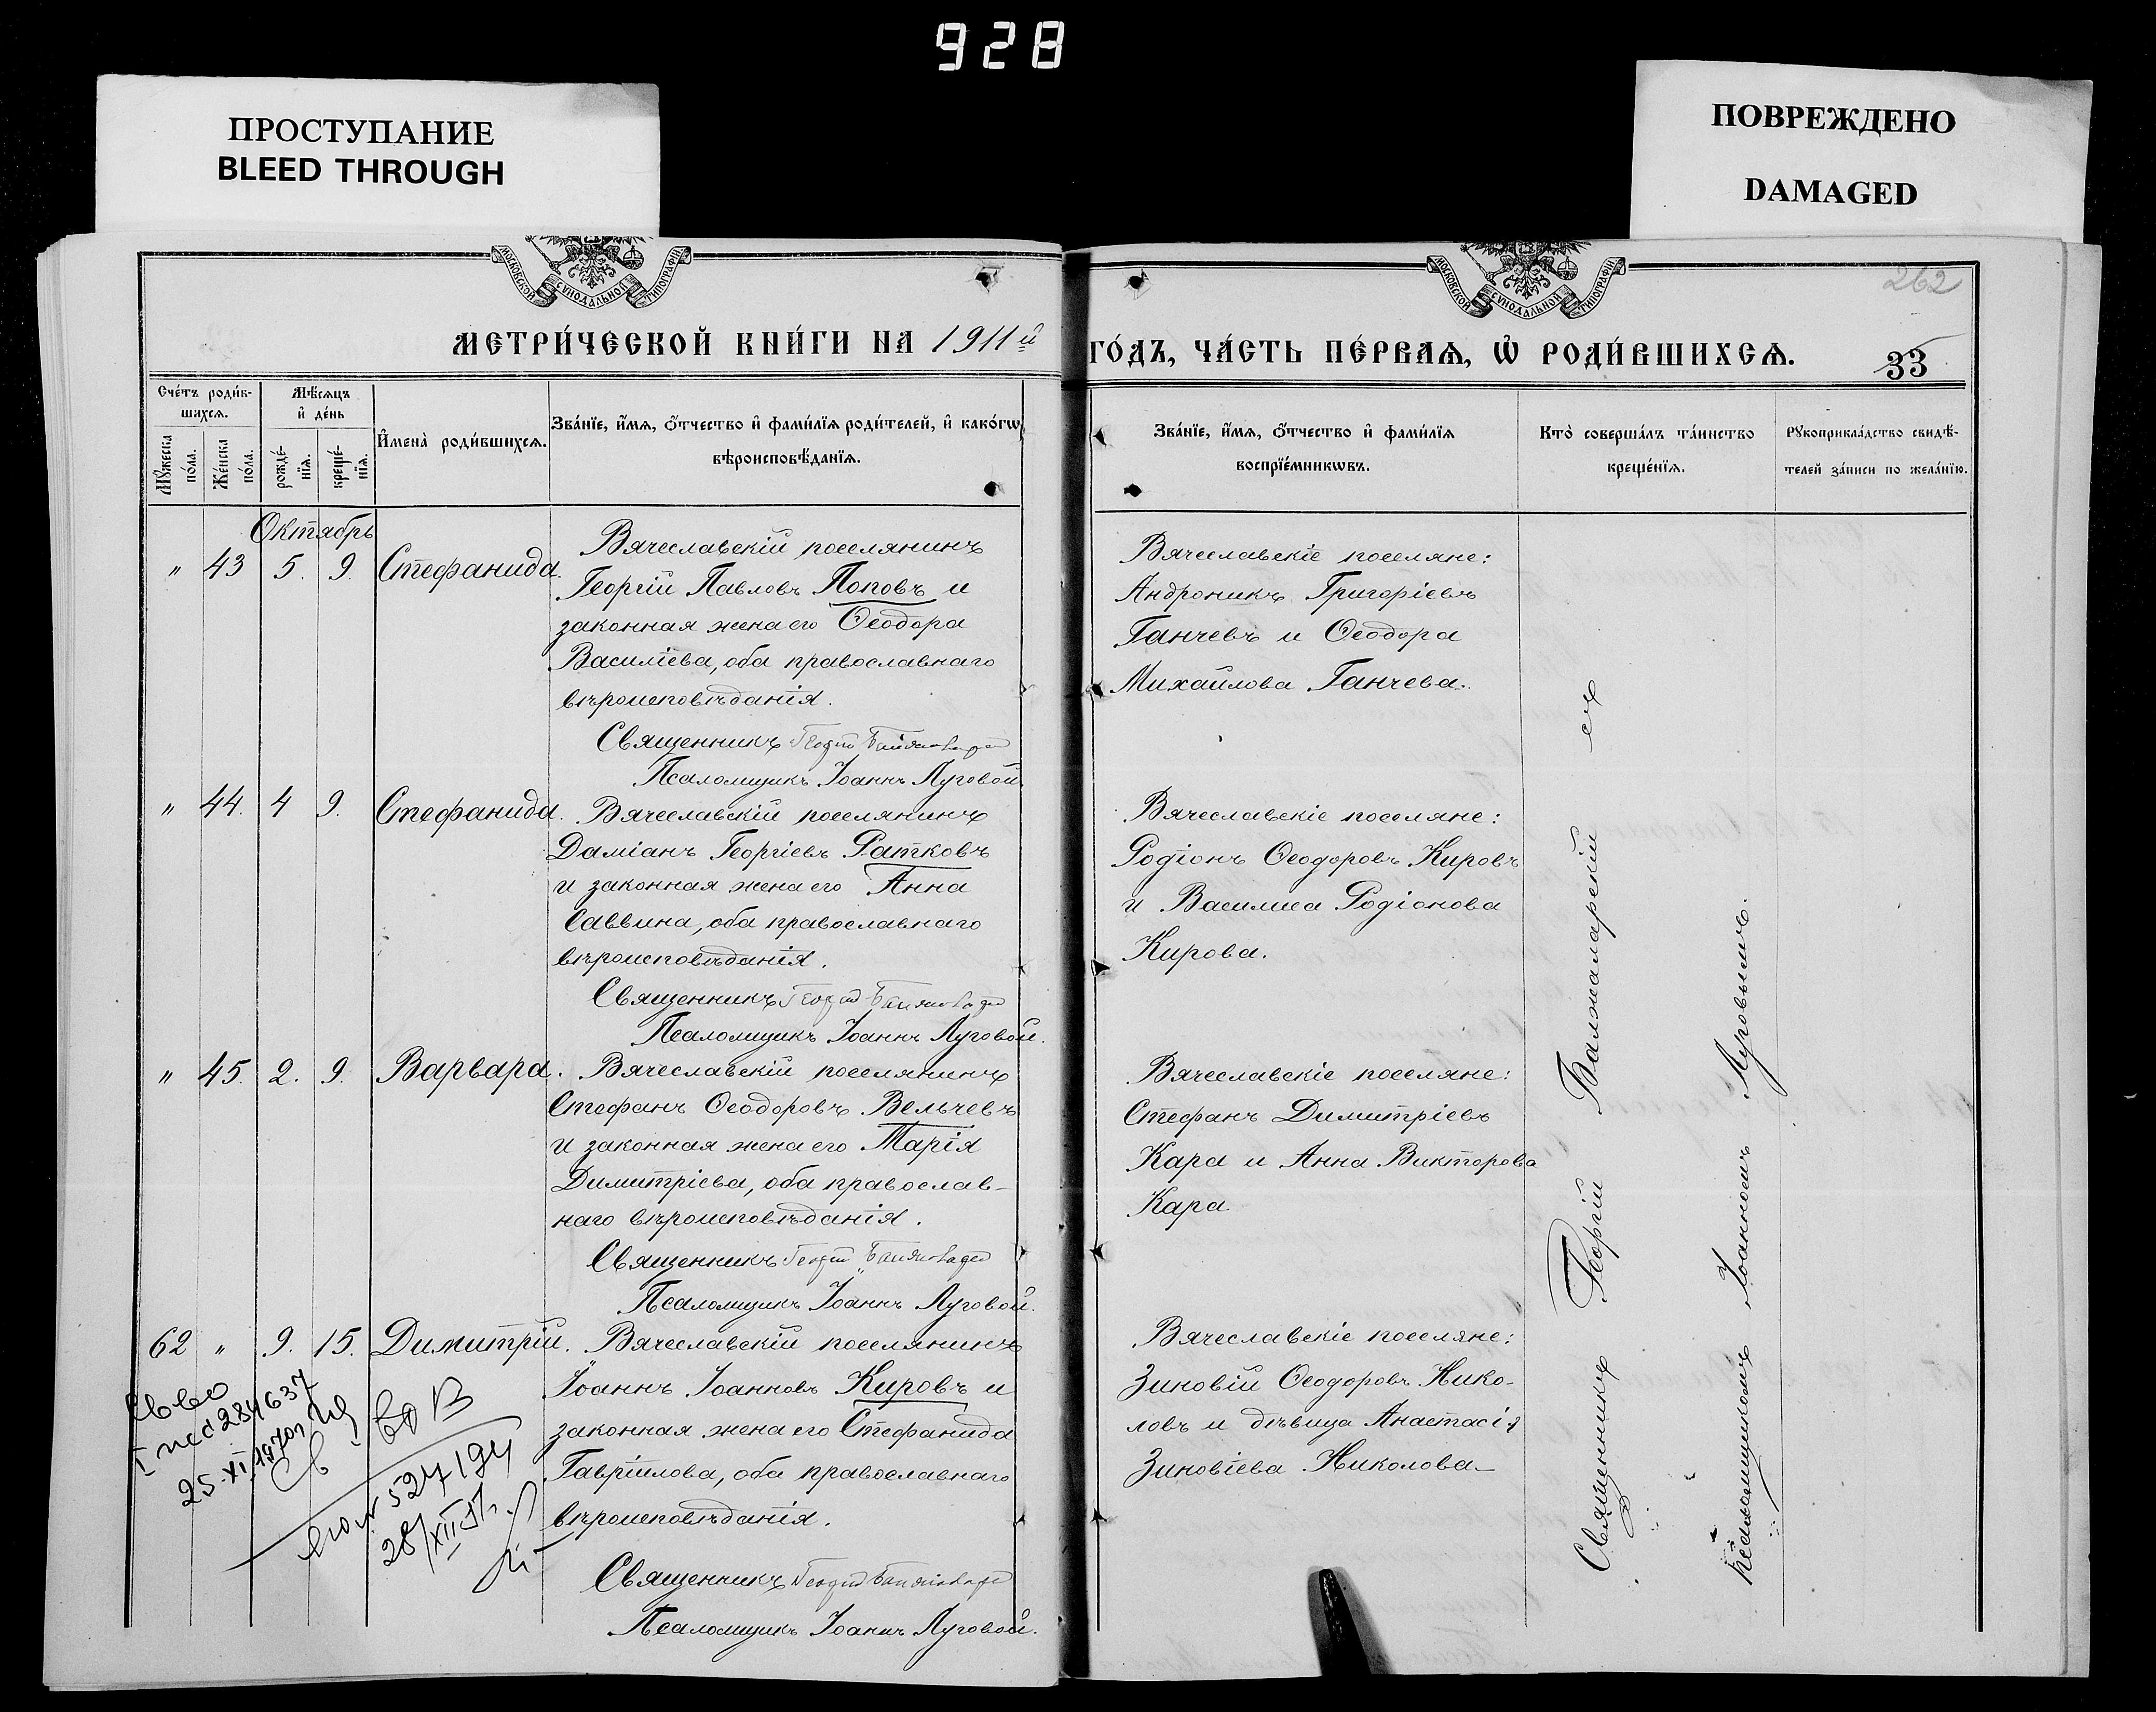 928
ПРОСТУПАНИЕ
BLEED THROUGH
ПОВРЕЖДЕНО
DAMAGED
МОСКОВСКОЙ СѴНОДАЛЬНОЙ ТИПОГРАФІИ.
МОСКОВСКОЙ СѴНОДАЛЬНОЙ ТИПОГРАФІИ.
262
МЕТРИ́ЧЕСКОЙ КНИ́ГИ НА 1911й
ГО́ДЪ, ЧА́СТЬ ПЕ́РВАѦ, Ѽ РОДИ́ВШИХСѦ.
33
Сче́тъ роди́в-
шихсѧ.
Мꙋжеска по́ла.
Же́нска по́ла.
Мѣ́сѧцъ
и҆ де́нь
рожде́-
нїѧ.
креще́-
нїѧ.
И҆мена̀ роди́вшихсѧ.
Зва́нїе, и҆́мѧ, ѻ҆́тчество и҆ фами́лїѧ роди́телей, и҆ како́гѡ
вѣроисповѣ́данїѧ.
Зва́нїе, и҆́мѧ, ѻ҆́тчество и҆ фами́лїѧ
воспрїе́мникѡвъ.
Кто̀ соверша́лъ та́инство
креще́нїѧ.
Рꙋкоприкла́дство свидѣ́-
телей за́писи по жела́нїю.
Октябрь
" 43 5. 9. Стефанида.
Вячеславскій поселянинъ
Георгій Павловъ Поповъ и
законная жена его Ѳеодора
Василіева, оба православнаго
вѣроисповѣданія.
Священникъ Георгій
Псаломщикъ Іоаннъ Луговой.
Вячеславскіе поселяне:
Андроникъ Григоріевъ
Ганчевъ и Ѳеодора
Михайлова Ганчева.
" 44. 4 9. Стефанида.
Вячеславскій поселянинъ
Даміанъ Георгіевъ Ратковъ
и законная жена его Анна
Саввина, оба православнаго
вѣроисповѣданія.
Священникъ Георгій
Псаломщикъ Іоаннъ Луговой.
Вячеславскіе поселяне:
Родіонъ Ѳеодоровъ Кировъ
и Василиса Родіонова
Кирова.
" 45. 2. 9. Варвара.
Вячеславскій поселянинъ
Стефанъ Ѳеодоровъ Вельчевъ
и законная жена его Марія
Димитріева, оба православ-
наго вѣроисповѣданія.
Священникъ Георгій
Псаломщикъ Іоаннъ Луговой.
Вячеславскіе поселяне:
Стефанъ Димитріевъ
Кара и Анна Викторова
Кара.
62 " 9. 15. Димитрій.
Вячеславскій поселянинъ
Іоаннъ Іоанновъ Кировъ и
законная жена его Стефанида
Гавріилова, оба православнаго
вѣроисповѣданія.
Священникъ Георгій
Псаломщикъ Іоаннъ Луговой.
Вячеславскіе поселяне:
Зиновій Ѳеодоровъ Нико-
ловъ и дѣвица Анастасія
Зиновіева Николова
284637
25.XI.1970г
527194
Священникъ Георгій Балжаларскій съ
Псаломщикомъ Іоанномъ Луговымъ.